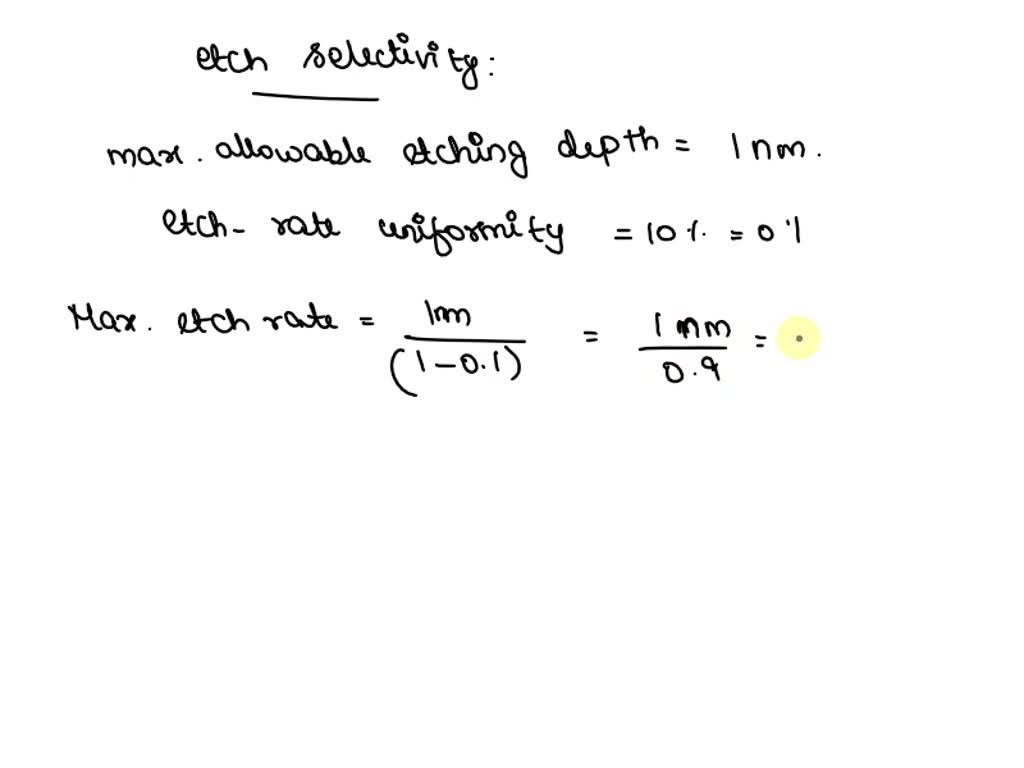 etch selectivity:
max. allowable etching depth = 1 nm.
etch-rate uniformity = 10% = 0.1
Max. etch rate = 1nm / (1-0.1) = 1 nm / 0.9 =